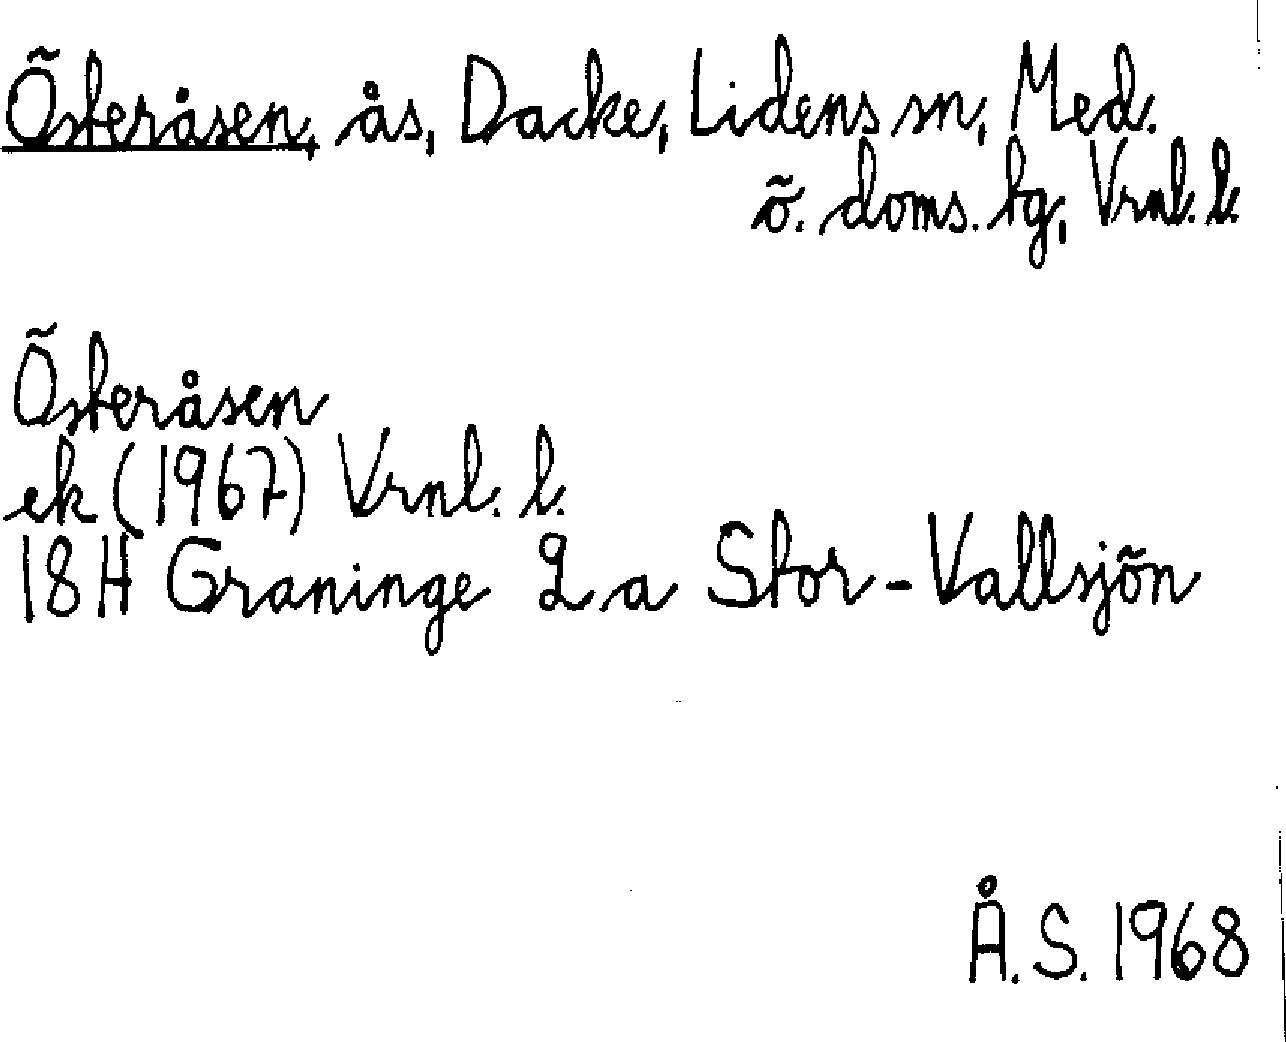 Österåsen, ås, Dacke, Lidens sn, Med.
ö. doms. tg, Vrnl. l.
Österåsen
ek (1967) Vrnl. l.
18H Graninge 2 a Stor-Vallsjön
Å. S. 1968